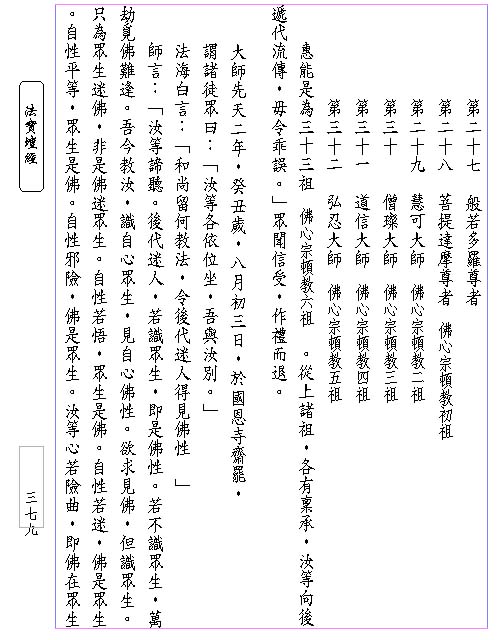 第二十七　般若多羅尊者
第二十八　菩提達摩尊者　佛心宗頓教初祖
第二十九　慧可大師　佛心宗頓教二祖
第三十　僧璨大師　佛心宗頓教三祖
第三十一　道信大師　佛心宗頓教四祖
第三十二　弘忍大師　佛心宗頓教五祖
惠能是為三十三祖　佛心宗頓教六祖　。從上諸祖，各有稟承，汝等向後
遞代流傳，毋令乖誤。」眾聞信受，作禮而退。
大師先天二年，癸丑歲，八月初三日，於國恩寺齋罷，
謂諸徒眾曰：「汝等各依位坐，吾與汝別。」
法海白言：「和尚留何教法，令後代迷人得見佛性　」
師言：「汝等諦聽。後代迷人，若識眾生，即是佛性。若不識眾生，萬
劫覓佛難逢。吾今教汝，識自心眾生，見自心佛性。欲求見佛，但識眾生。
只為眾生迷佛，非是佛迷眾生。自性若悟，眾生是佛。自性若迷，佛是眾生
。自性平等，眾生是佛。自性邪險，佛是眾生。汝等心若險曲，即佛在眾生
法寶壇經
三七九